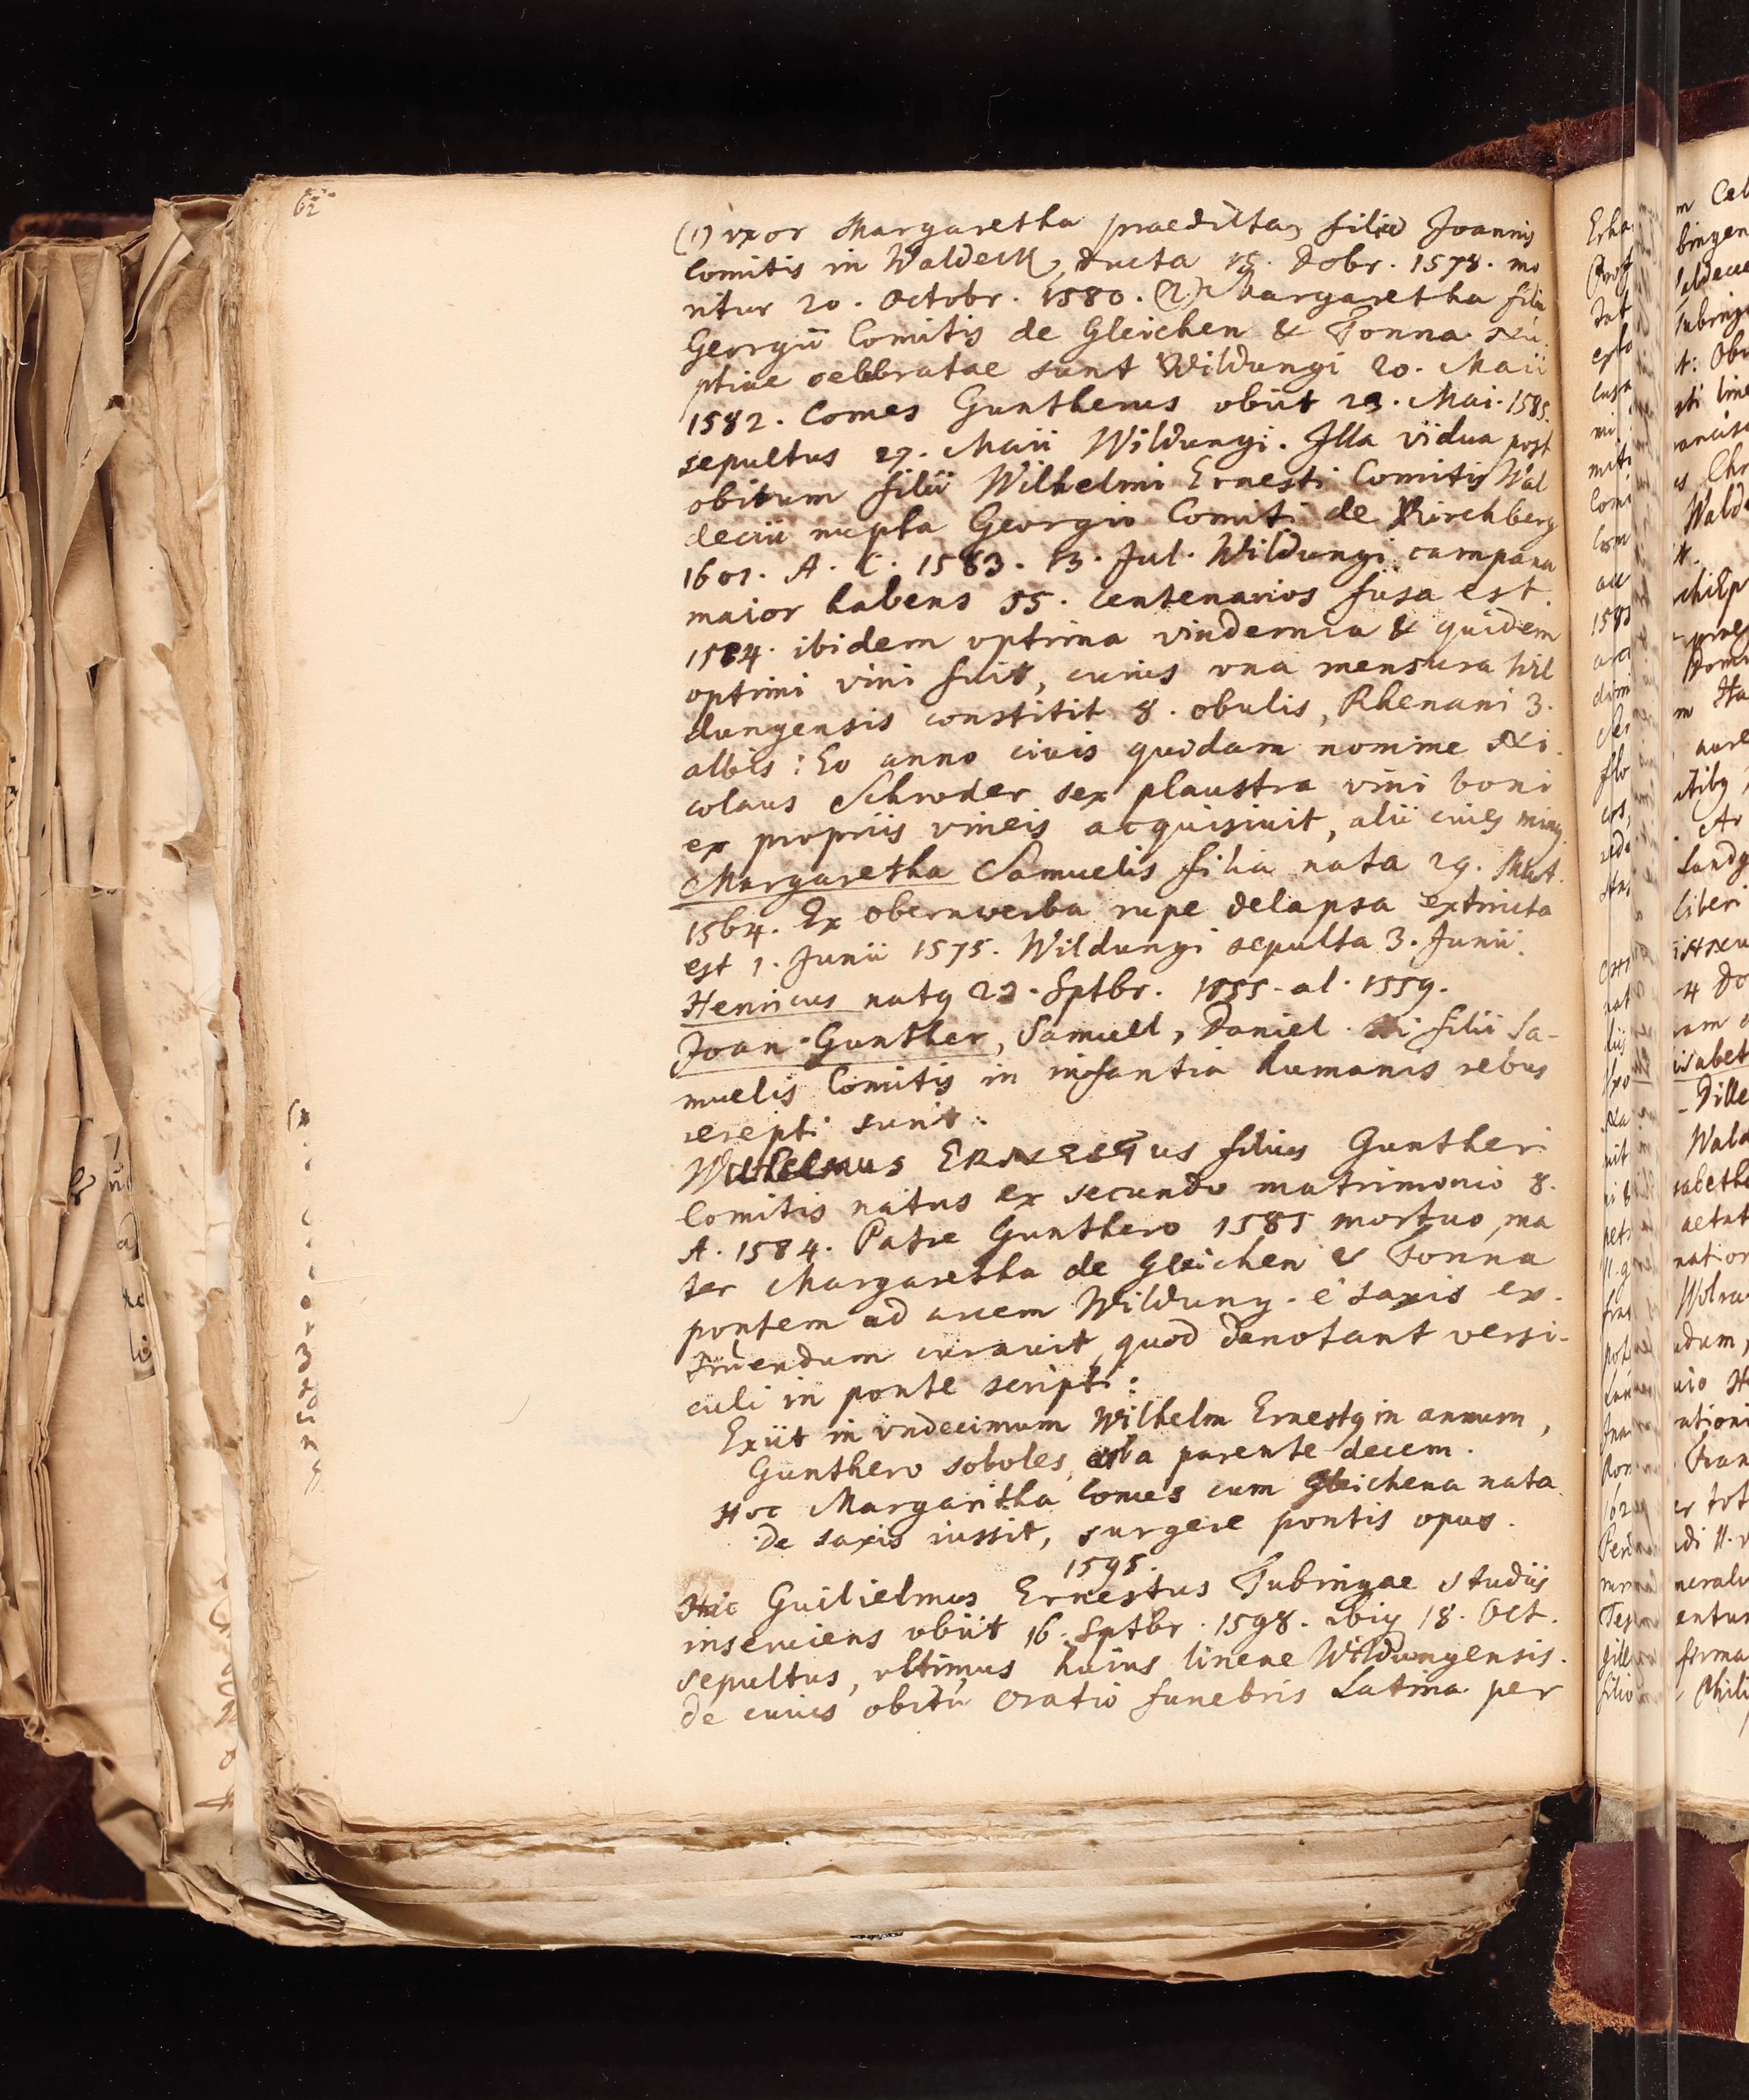 62
(1) vxor Margaretha praedicta, filia Joannis
Comitis in Waldeck, ducta 15. Dobr. 1578. mo
ritur 20. Octobr. 1580. (2) Margaretha filia
Georgii Comitis de Gleichen & Tonna. Nu
ptiae celebratae sunt Wildungi 20. Maii
1582. Comes Guntherus obiit 23. Mai. 1585.
sepultus 27. Maii Wildungi. Illa vidua post
obitum filii Wilhelmi Ernesti Comitis Wal
deccii nupta Georgio Comiti de Kirchberg
1601. A. C. 1583. 13. Jul. Wildungi campana
maior habens 55. centenarios fusa est.
1584. ibidem optima vindemia & quidem
optimi vini fuit, cuius vna mensura Wil
dungensis constitit 8. obulis, Rhenani 3.
albis: Eo anno civis quidam nomine Ni
colaus Schroder sex plaustra vini boni
ex propriis vineis acquisiuit, alii ciues ming
Margaretha Samuelis filia nata 29.
1564. Ex obernwerba rupe delapsa extincta
est 1. Junii 1575. Wildungi sepulta 3. Junii.
Henricus natg 22. Sptbr. 1555. al. 1559.
Joan-Gunther, Samuel, Daniel. filii Sa-
muelis Comitis in infantia humanis rebus
erepti sunt.
Wilhelmus Ernestus filius Guntheri
Comitis natus ex secundo matrimonio 8.
A. 1584. Patre Gunthero 1585 mortuo, ma
ter Margaretha de Gleichen & Tonna
pontem ad arcem Wildung. e saxis ex-
truendum curauit, quod denotant versi-
culi in ponte scripti:
Exiit in vndecimum Wilhelm Ernestg in annum,
Gunthero soboles, orba parente decem.
Hoc Margaritha Comes cum Gleichena nata
De saxis iussit, surgere pontis opus.
1595.
Hic Guilielmus Ernestus Tubingae studiis
inseruiens obiit 16. Sptbr. 1598. ibiq 18. Oct.
sepultus, vltimus huius lineae Wildungensis.
de cuius obitu Oratio funebris Latina per